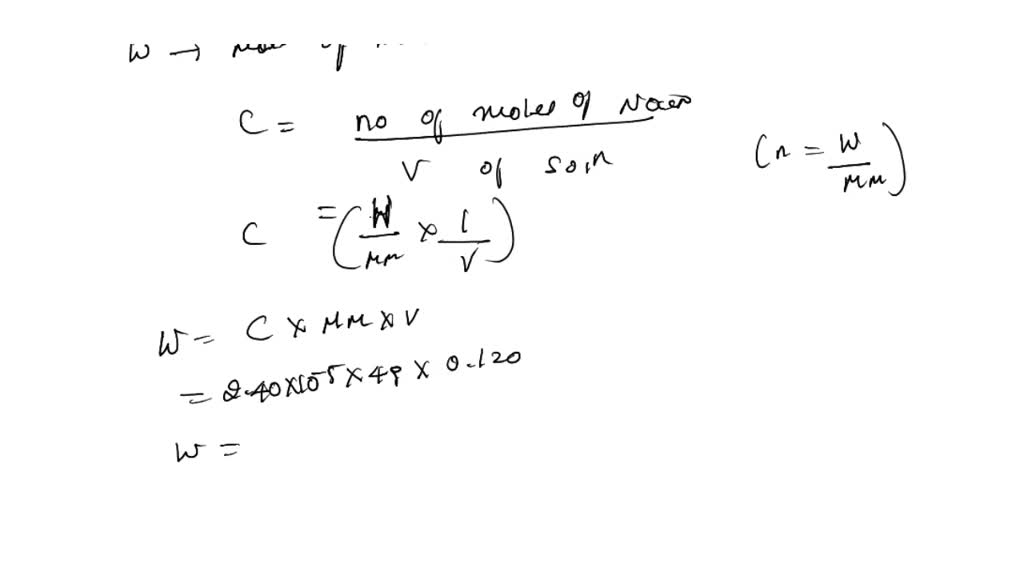 W → of
C = no of moles of
V of soln
(n = W / MM)
C = (W / MM × 1 / V)
W = C × MM × V
= 2.40×10⁻⁵ × 49 × 0.120
W =